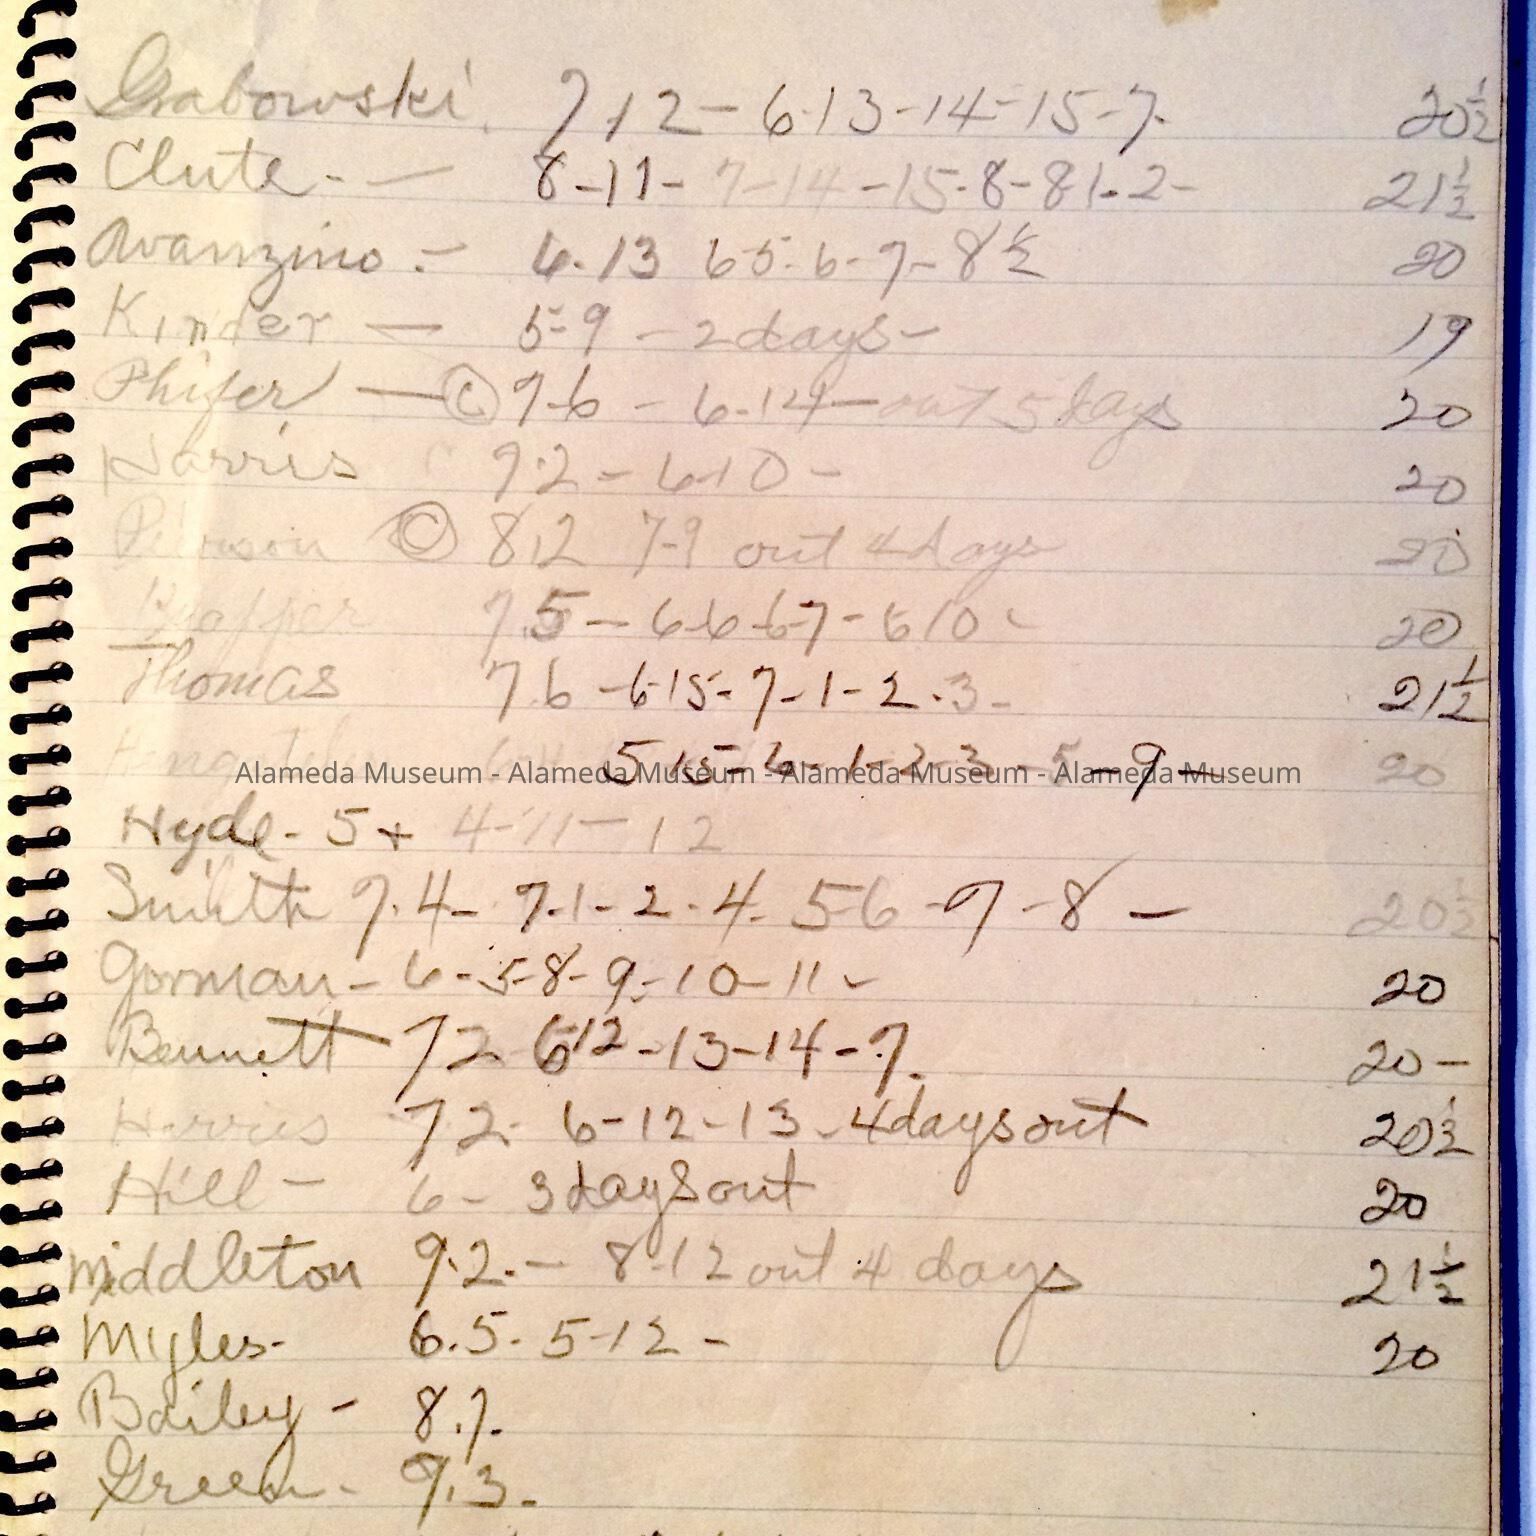 Grabowski. 7.12 - 6.13 - 14 - 15 - 7. 20 1/2
Clute - - 8 - 11 - 7 - 14 - 15 - 8 - 8 1. 2 - 21 1/2
Avanzino. - 6. 13 6 5 - 6 - 7 - 8 1/2 20
Kinder - 5 - 9 - 2 days - 19
Phifer - C 7.6 - 6.14 - out 5 days 20
Harris 9.2 - 6.10 - 20
C 8.2 7-9 out 4 days 20
7.5 - 6 6 6 - 7 - 6 10 - 20
Thomas 7.6 - 6.15 - 7 - 1 - 2. 3 - 21 1/2
5 15 - 1 - 2 - 3 - 5 - 9 - 20
Alameda Museum - Alameda Museum - Alameda Museum - Alameda Museum
Hyde - 5 + 4 - 11 - 12
Smith 7.4 - 7.1 - 2. 4. 5 - 6 - 7 - 8 - 20 1/2
Gorman - 6 - 5 - 8 - 9 - 10 - 11 - 20
Bennett 7 2 6 12 - 13 - 14 - 7. 20 -
Harris 7 2. 6 - 12 - 13 - 4 days out 20 1/2
Hill - 6 - 3 days out 20
Middleton 9.2. - 8 - 12 out 4 days 21 1/2
Myles - 6.5. 5 - 12 - 20
Bailey - 8.7.
Green - 9.3.